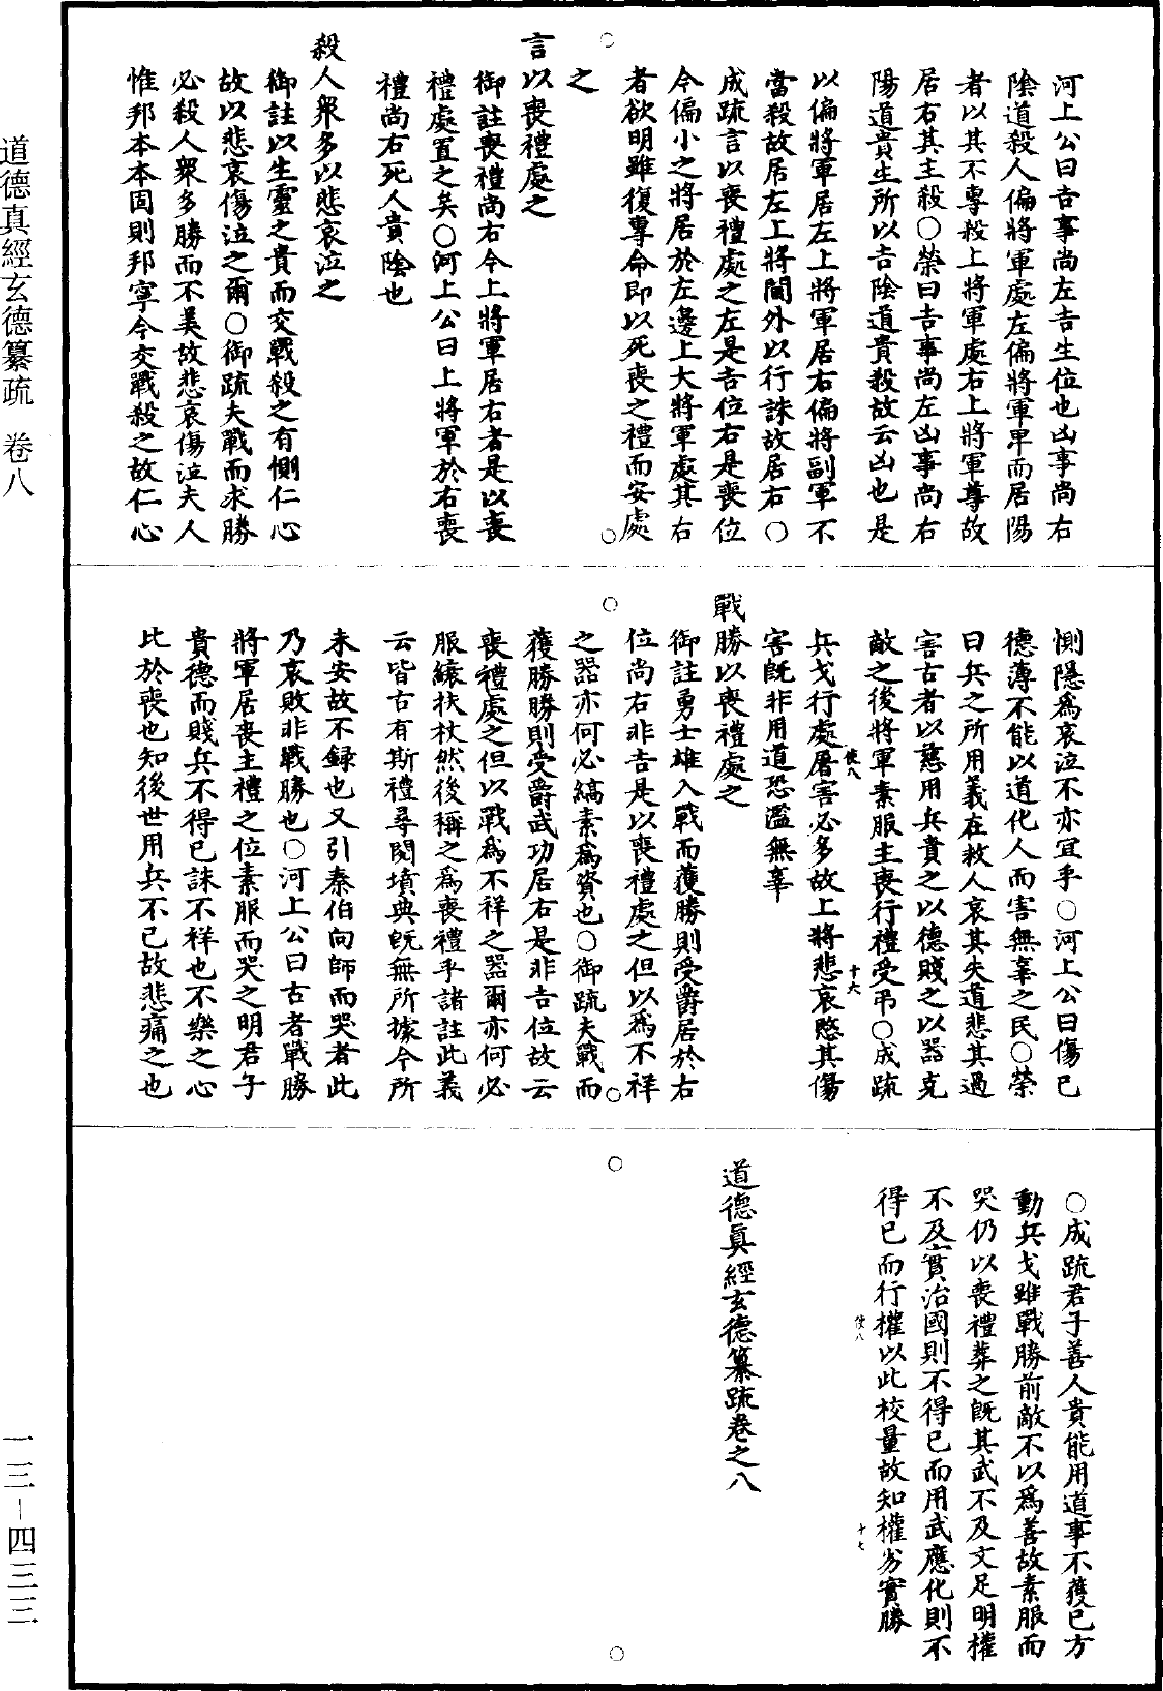 河上公曰吉事尚左吉生位也凶事尚右
陰道殺人偏將軍處左偏將軍卑而居陽
者以其不專殺上將軍處右上將軍尊故
居右其主殺○榮曰吉事尚左凶事尚右
陽道貴生所以吉陰道貴殺故云凶也是
以偏將軍居左上將軍居右偏將副軍不
當殺故居左上將閫外以行誅故居右○
成疏言以喪禮處之左是吉位右是喪位
今偏小之將居於左邊上大將軍處其右
者欲明雖復專命即以死喪之禮而安處
之
言以喪禮處之
御註喪禮尚右今上將軍居右者是以喪
禮處置之矣○河上公曰上將軍於右喪
禮尚右死人貴陰也
殺人衆多以悲哀泣之
御註以生靈之貴而交戰殺之有惻仁心
故以悲哀傷泣之爾○御疏夫戰而求勝
必殺人衆多勝而不美故悲哀傷泣夫人
惟邦本本固則邦寧今交戰殺之故仁心
惻隱爲哀泣不亦宜乎○河上公曰傷已
德薄不能以道化人而害無辜之民○榮
曰兵之所用義在救人哀其失道悲其過
害古者以慈用兵貴之以德賤之以器克
敵之後將軍素服主喪行禮受弔○成疏
使八
十六
兵戈行處屠害必多故上將悲哀愍其傷
害既非用道恐濫無辜
戰勝以喪禮處之
御註勇士雄入戰而獲勝則受爵居於右
位尚右非吉是以喪禮處之但以爲不祥
之器亦何必縞素爲資也○御疏夫戰而
獲勝勝則受爵武功居右是非吉位故云
喪禮處之但以戰爲不祥之器爾亦何必
服縗扶杖然後稱之爲喪禮乎諸註此義
云皆古有斯禮尋閱墳典既無所據今所
未安故不録也又引秦伯向師而哭者此
乃哀敗非戰勝也○河上公曰古者戰勝
將軍居喪主禮之位素服而哭之明君子
貴德而賤兵不得已誅不祥也不樂之心
比於喪也知後世用兵不已故悲痛之也
○成疏君子善人貴能用道事不獲已方
動兵戈雖戰勝前敵不以爲善故素服而
哭仍以喪禮葬之既其武不及文足明權
不及實治國則不得已而用武應化則不
得已而行權以此校量故知權劣實勝
使八
十七
道德真經玄德纂疏卷之八
道德真經玄德纂疏　卷八
一三－四三三